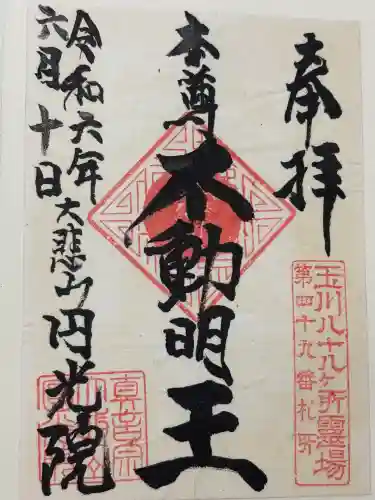 奉拝
玉川八十八ヶ所霊場
第四十九番札所
本尊
不動明王
令和六年
六月十日
大悲山
円光院
真言宗